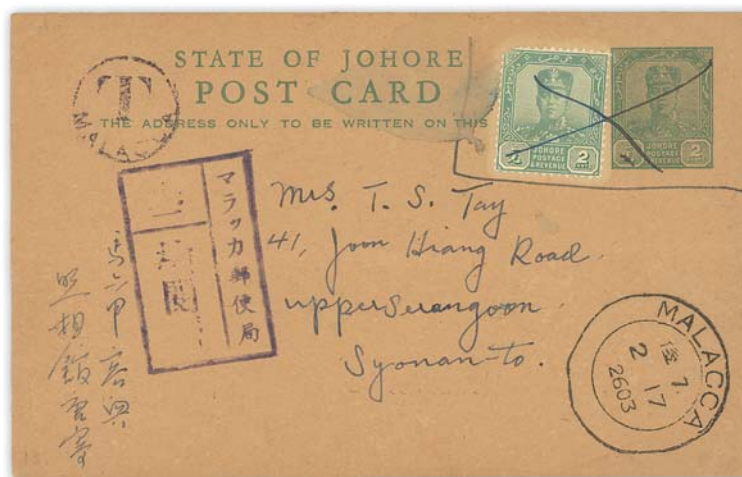 STATE OF JOHORE
POST CARD
THE ADDRESS ONLY TO BE WRITTEN ON THIS
T
MALACCA
JOHORE
POSTAGE
& REVENUE
2
JOHORE
POSTAGE
& REVENUE
2
マラッカ郵便局
Mrs. T. S. Tay
41, Joon Hiang Road.
upper Serangoon.
Syonan-to.
馬六甲
照相館
MALACCA
7.
2 17
2603